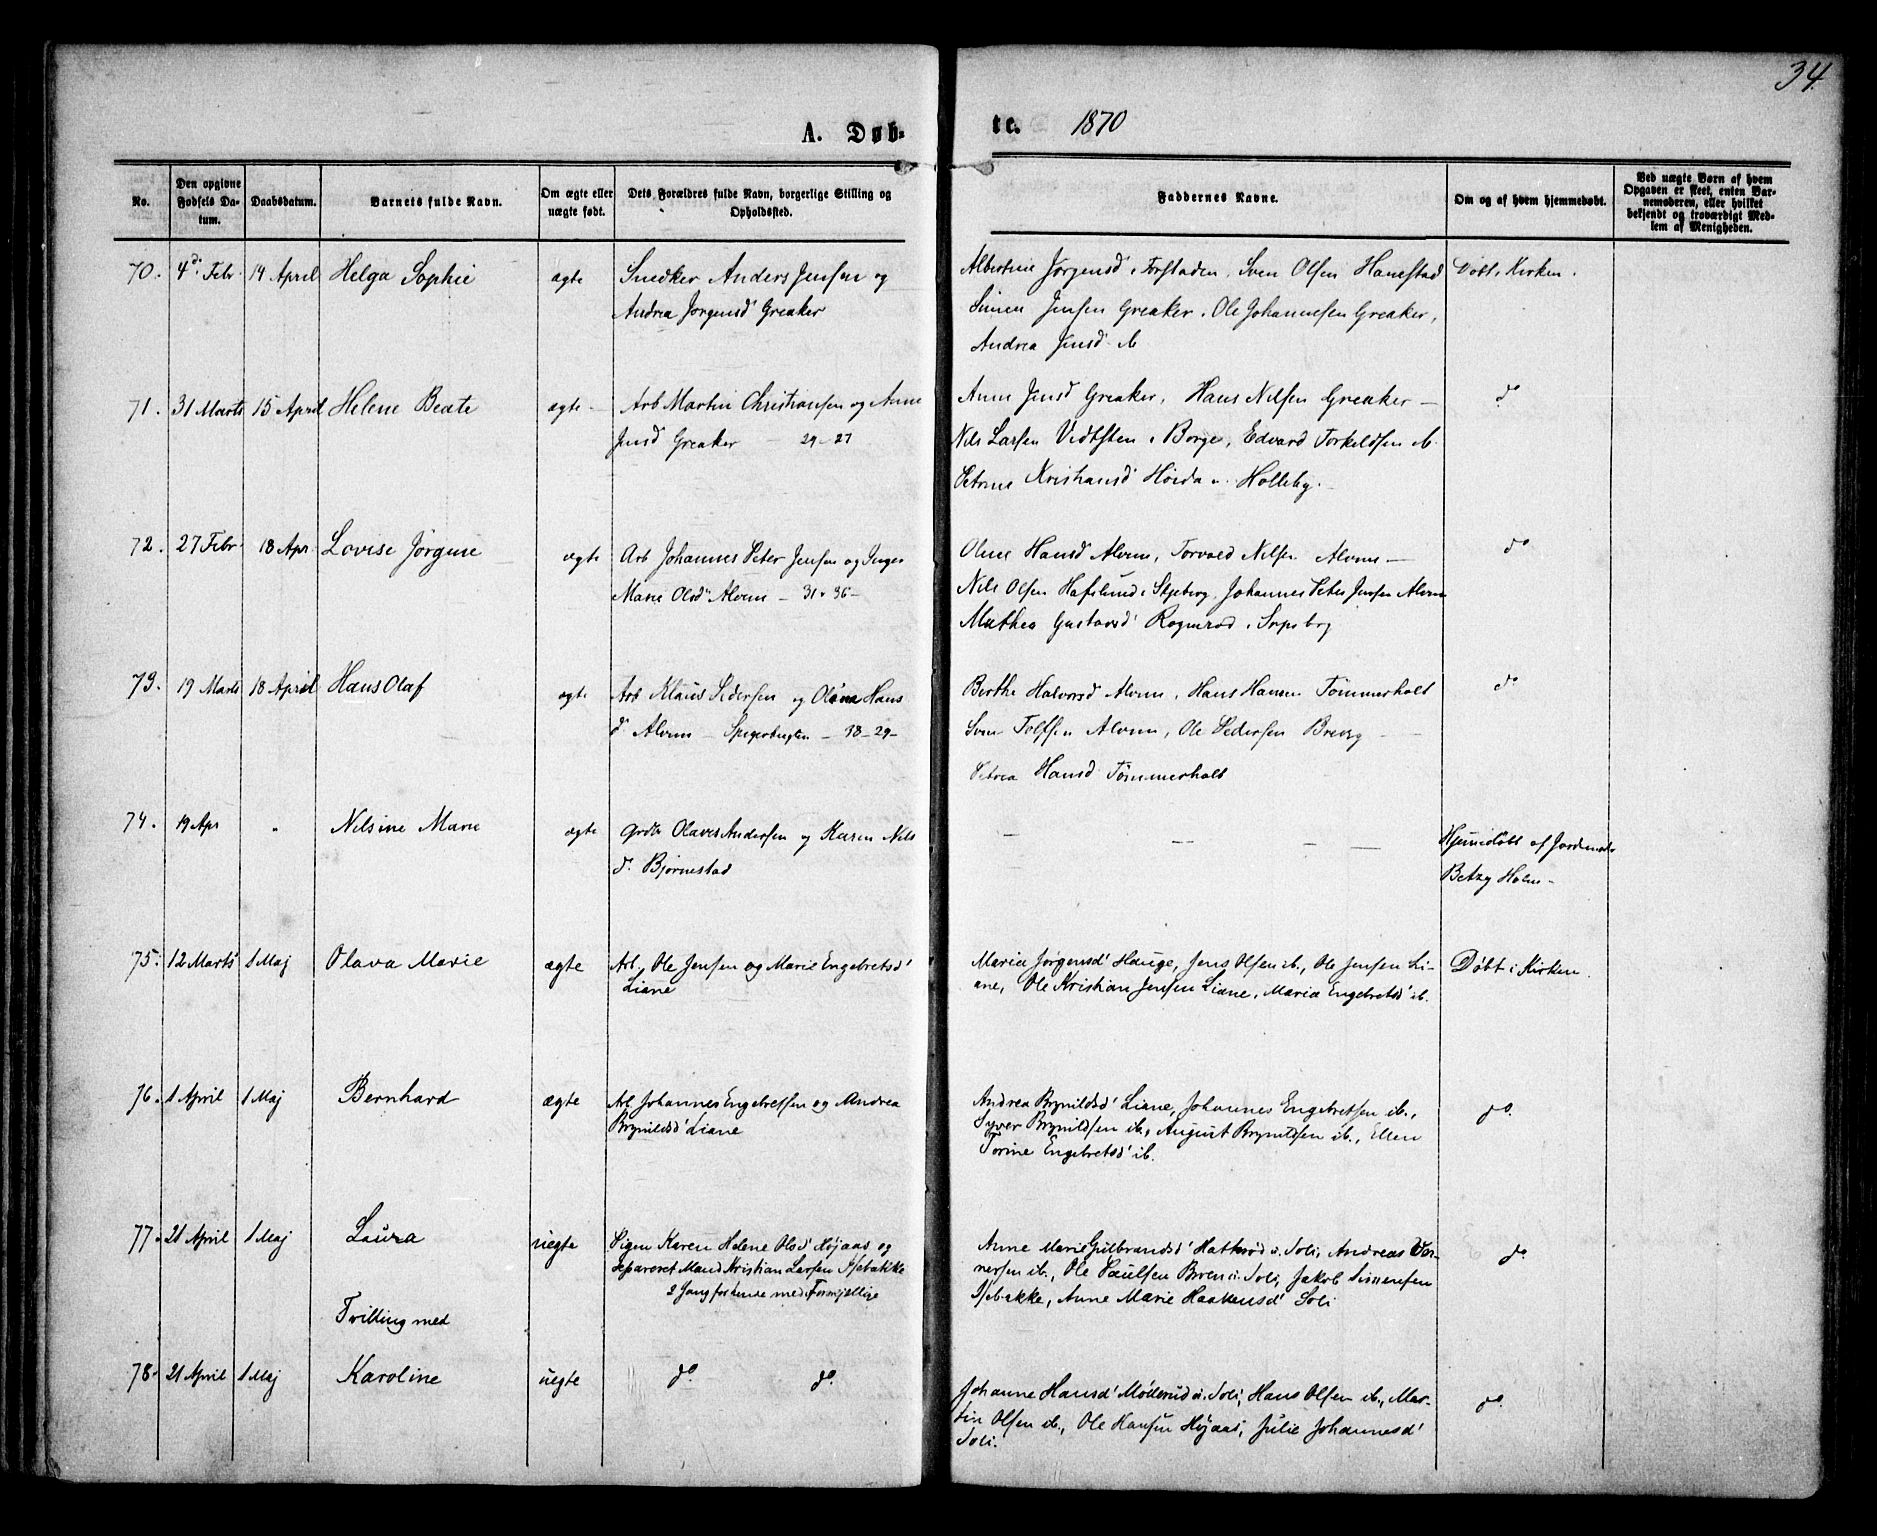 34.
A. Døb- te. 1870
No.
Den opgivne Fødsels Datum.
Daabsdatum.
Barnets fulde Navn.
Om ægte eller uægte født.
Dets Forældres fulde Navn, borgerlige Stilling og Opholdssted.
Faddernes Navne.
Om og af hvem hjemmedøbt.
Ved uægte Børn af hvem Opgaven er skeet, enten Barnemoderen, eller hvilket bekjendt og troværdigt Medlem af Menigheden.
70. 4d Febr. 14 April Helga Sophie ægte Snedker Anders Jensen og
Andrea Jørgensd Greaker
Albertine Jørgensd i Forstaden, Sven Olsen Hanestad
Simen Jensen Greaker, Ole Johannesen Greaker,
Andrea Jensd ib
Døbt i Kirken.
71. 31 Marts 15 April Helene Beate ægte Arb Martin Christiansen og Anne
Jensd Greaker 29-27
Anne Jensd Greaker, Hans Nilsen Greaker
Nils Larsen Vidtsten i Borge, Edvard Torkeldsen ib.
Petrine Kristiansd Høida u. Holleby.
do
72. 27 Febr 18 Apr Lovise Jørgine ægte Arb Johannes Peter Jensen og Inger
Marie Olsd Alvim - 31-36-
Oline Hansd Alvim, Torvald Nilsen Alvim
Nils Olsen Hafslund i Skjeberg, Johannes Peter Jensen Alvim
Mathea Gustavsd Rognerød i Sarpsborg
do
73. 19 Marts 18 April Hans Olaf ægte Arb Klaus Pedersen og Olina Hans
d Alvim - Spigerbugten - 38-29-
Berthe Halvorsd Alvim, Hans Hansen Tømmerholt
Sven Tolfsen Alvim, Ole Pedersen Brevig
Petrea Hansd. Tømmerholt
do
74. 19 Apr " Nilsine Marie ægte Grdbr Olaves Andersen og Karen Nils
d. Bjørnestad
- - - -
Hjemmedøbt af Jordmoder
Betzy Holm-
75. 12 Marts 1 Maj Olava Marie ægte Arb. Ole Jensen og Marie Engebretsd
Liane
Maria Jørgensd Hauge, Jens Olsen ib., Ole Jensen Li-
ane, Ole Kristian Jensen Liane, Maria Engebretsd ib.
Døbt i Kirken.
76. 1 April 1 Maj Bernhard ægte Arb Johannes Engebretsen og Andrea
Brynildsd Liane
Andrea Brynildsd Liane, Johannes Engebretsen ib.,
Syver Brynildsen ib., August Brynildsen ib., Ellen
Torine Engebretsd ib.
do.
77. 21 April 1 Maj Laura uægte Pigen Karen Helene Olsd Højaas og
separeret Mand Kristian Larsen Isebakke
2 Gang for hende med Formjellige
Tvilling med
Anne Marie Gulbrandsd Hatterød u. Soli, Andreas Tor-
nersen ib., Ole Paulsen Bren u. Soli, Jakob Simensen
Isebakke, Anne Marie Haakensd Soli
do
78. 21 April 1 Maj Karoline uægte do. do.
Johanne Hansd Møllerud u. Soli, Hans Olsen ib., Mar-
tin Olsen ib., Ole Hansen Højaas, Julie Johannesd
Soli.
do.